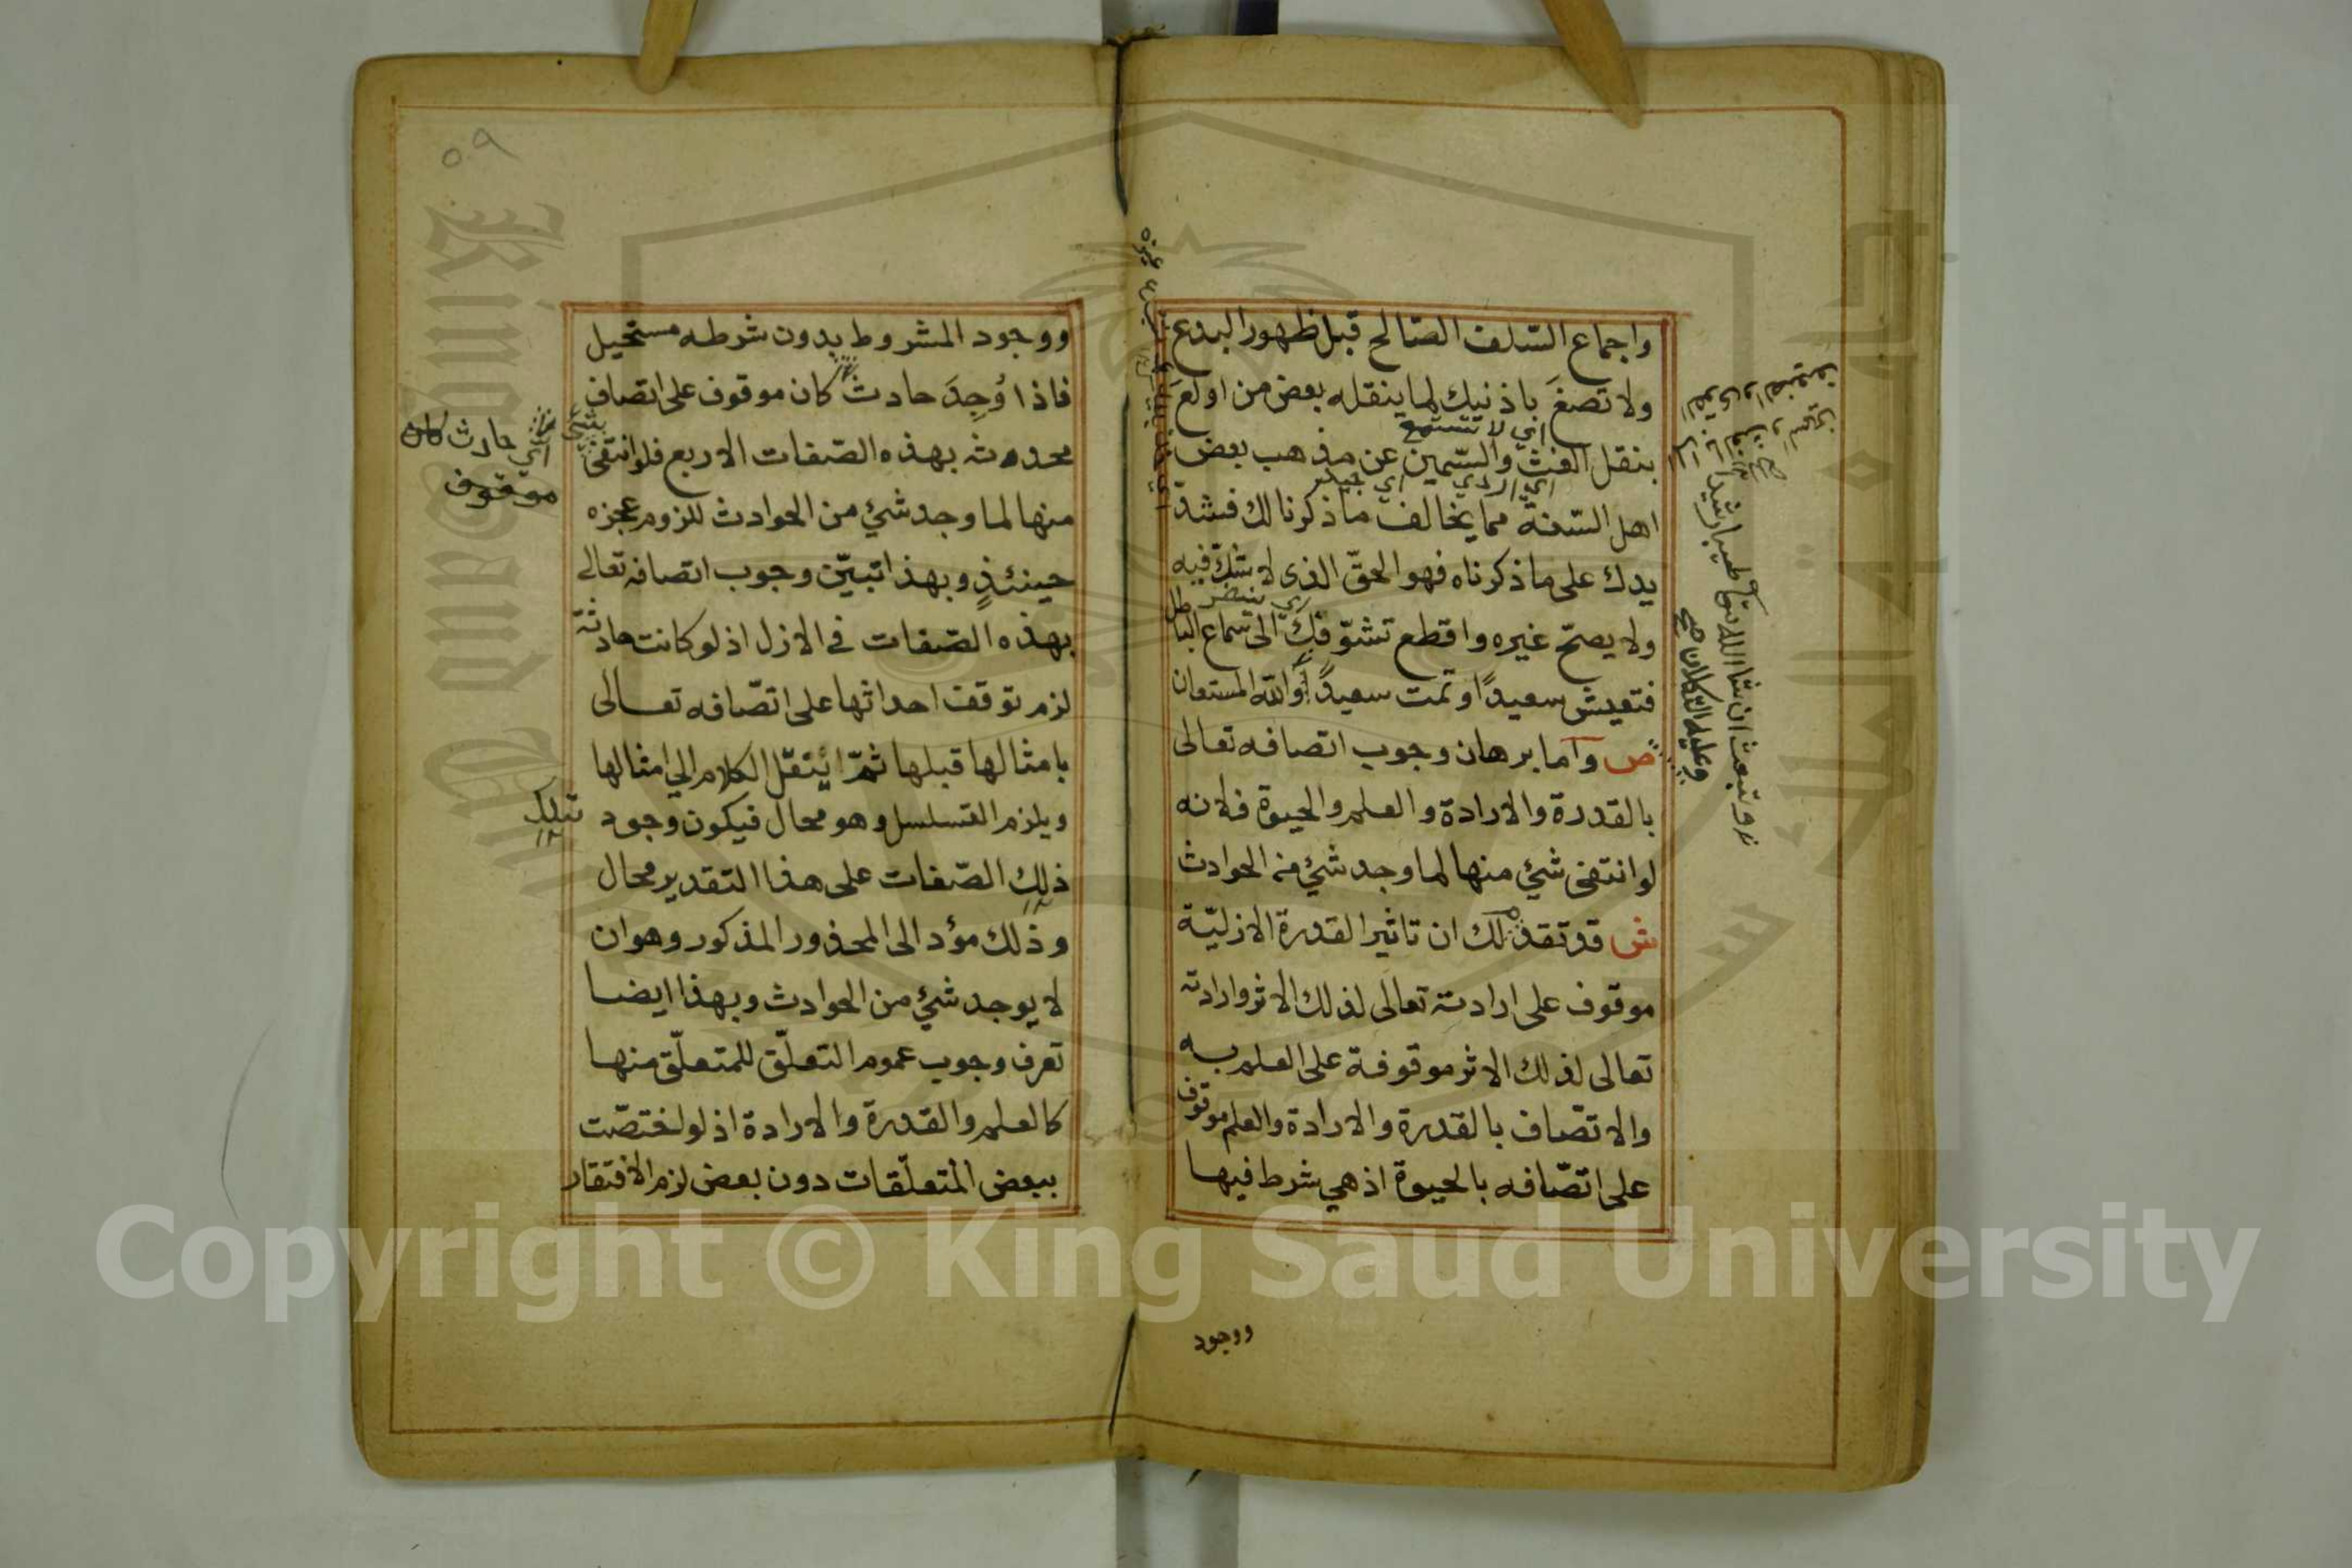 واجماع السّلف الصّالح قبل ظهور البدع
ولا تصغَ باذنيك لما ينقله بعض من اولعَ
اي لا تستمع
بنقل الغثّ والسّمين عن مذهب بعض
اي الردي اي جيد
اهل السّنة مما يخالف ما ذكرنا لك فشدّ
يدك على ما ذكرناه فهو الحقّ الذى لا شكّ فيه
ولا يصحّ غيره واقطع تشوّفك الى سماع الباطل
فتعيش سعيدًا وتمت سعيدًا والله المستعان
ص واما برهان وجوب اتصافه تعالى
بالقدرة والارادة والعلم والحيوة فلانه
لو انتفى شئ منها لما وجد شئ من الحوادث
ش قد تقدم لك ان تاثير القدرة الازليّة
موقوف على ارادته تعالى لذلك الاثر وارادته
تعالى لذلك الاثر موقوفة على العلم به
والاتصّاف بالقدرة والارادة والعلم موقوف
على اتصّافه بالحيوة اذ هي شرط فيها
ووجود
وعليه التكلان صح
ووجود المشروط بدون شرطه مستحيل
فاذا وُجِدَ حادثٌ كان موقوف على اتصاف
محدثه بهذه الصّفات الاربع فلو انتفى
شئ
اي حادث كان
موقوف
منها لما وجد شئ من الحوادث للزوم عجزه
حينئذٍ وبهذا تبيّن وجوب اتصافه تعالى
بهذه الصّفات فى الازل اذ لو كانت حادثة
لزم توقف احداثها على اتصّافه تعالى
بامثالها قبلها ثمّ يُنقل الكلام الى امثالها
ويلزم التسلسل وهو محال فيكون وجود
تلك
ذلك الصّفات على هذا التقدير محال
وذلك مؤد الى المحذور المذكور وهو ان
لا يوجد شئ من الحوادث وبهذا ايضا
تعرف وجوب عموم التعلّق للمتعلّق منها
كالعلم والقدرة والارادة اذ لو اختصّت
ببعض المتعلّقات دون بعض لزم الافتقار
٥٩
Copyright © King Saud University